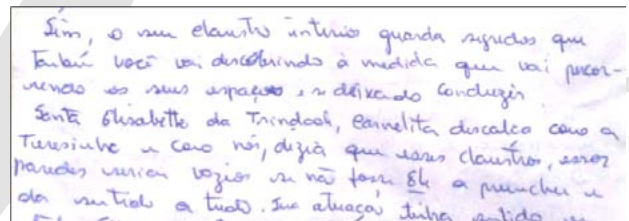 Sim, o seu claustro interior guarda segredos que
também você vai descobrindo à medida que vai percor-
rendo os seus espaços e se deixando conduzir
Santa Elisabette da Trindade, carmelita descalça como a
Teresinha e como nós, dizia que esses claustros, essas
paredes seriam vazios se não fosse Ele a preencher e
dar sentido a tudo. Sua atuação tinha sentido